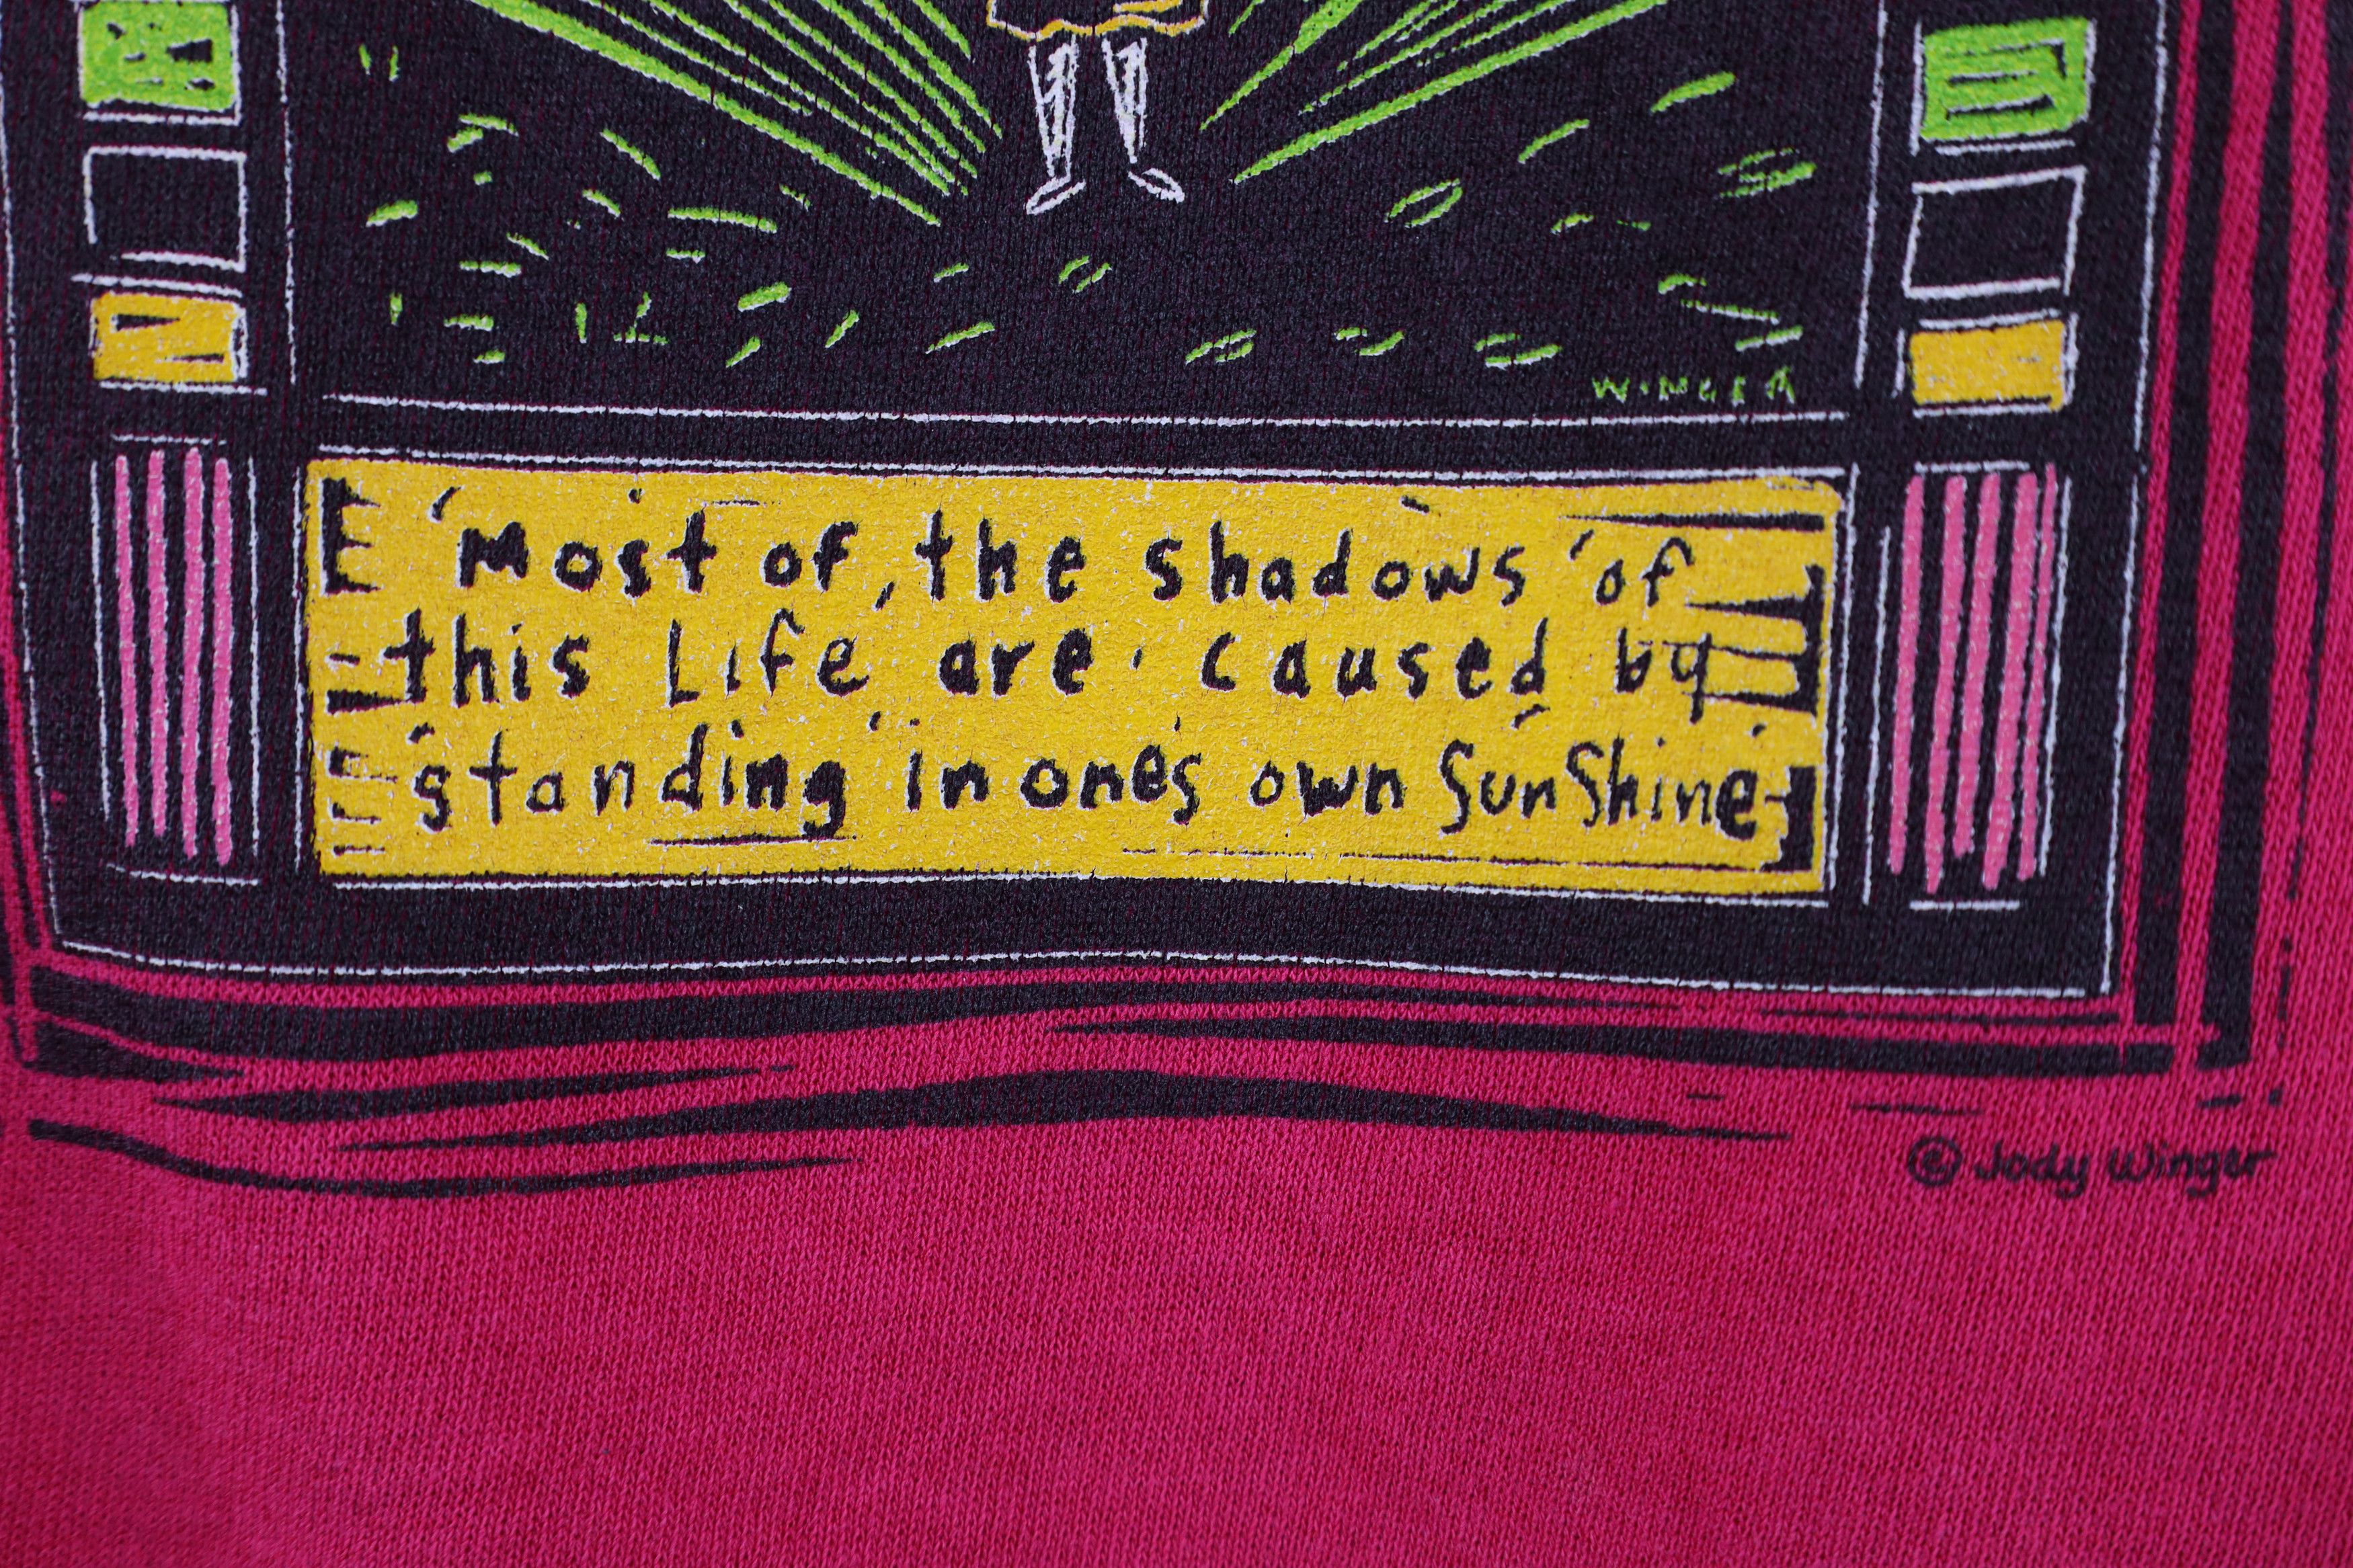 WINGER
most of the shadows of
this Life are caused by
standing in one's own SunShine
© Jody Winger